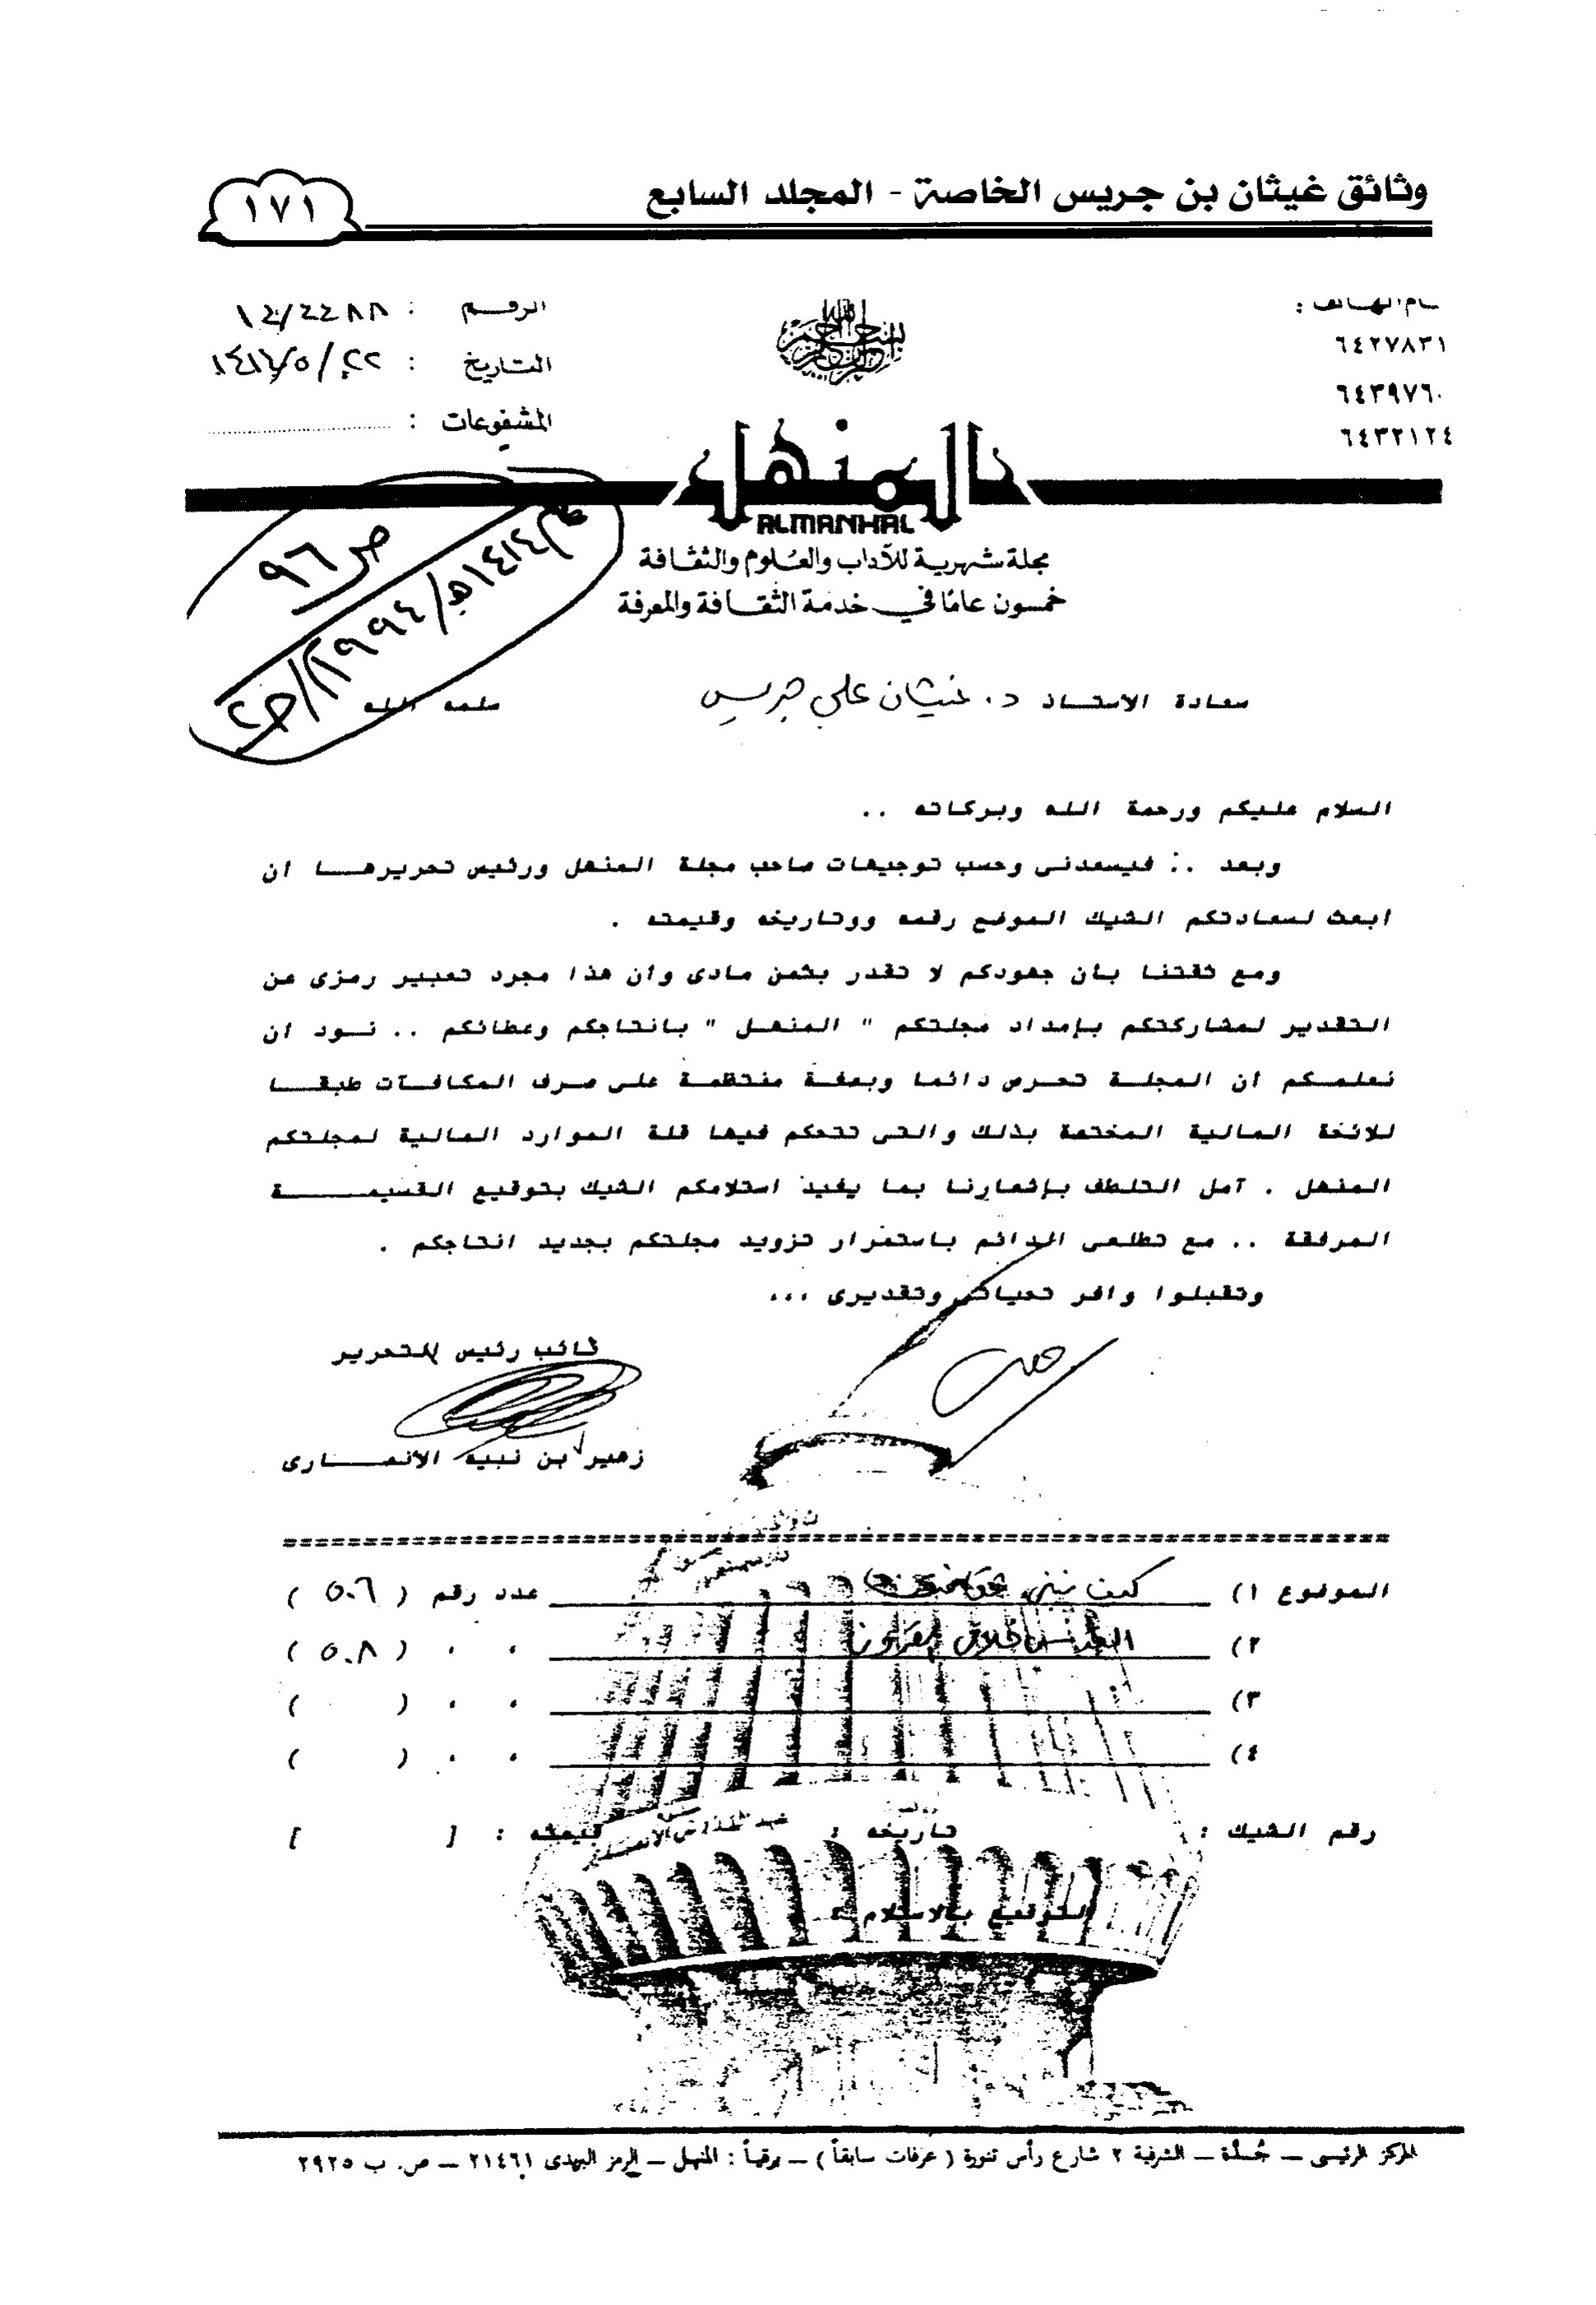 وثائق غيثان بن جريس الخاصة - المجلد السابع
١٧١
ـام الهاتف :
٦٤٢٧٨٣١
٦٤٣٩٧٦٠
٦٤٣٢١٢٤
الرقم : ١٤/٢٢٨٨
التاريخ :
المشفوعات :
بسم الله الرحمن الرحيم
المنهل
ALMANHAL
مجلة شهرية للآداب والعلوم والثقافة
خمسون عامًا في خدمة الثقافة والمعرفة
ص ٩٦
١٤١٤هـ/١٩٩٤م
سعادة الاستاذ د. غيثان علي جريس سلمه الله
السلام عليكم ورحمة الله وبركاته ..
وبعد .. فيسعدنى وحسب توجيهات صاحب مجلة المنهل ورئيس تحريرها ان
ابعث لسعادتكم الشيك الموضح رقمه ووتاريخه وقيمته .
ومع ثقتنا بأن جهودكم لا تقدر بثمن مادى وان هذا مجرد تعبير رمزى عن
التقدير لمشاركتكم بإمداد مجلتكم " المنهل " بانتاجكم وعطائكم .. نود ان
نعلمكم ان المجلة تحرص دائما وبصفة منتظمة على صرف المكافآت طبقا
للائحة المالية المختصة بذلك والتى تتحكم فيها قلة الموارد المالية لمجلتكم
المنهل . آمل التلطف بإشعارنا بما يفيد استلامكم الشيك بتوقيع القسيمة
المرفقة .. مع تطلعى الدائم باستمرار تزويد مجلتكم بجديد انتاجكم .
وتقبلوا وافر تحياتى وتقديرى ...
نائب رئيس التحرير
زهير بن نبيه الأنصارى
الموضوع ١) كيف نبني عدد رقم ( ٥٠٦ )
٢) ، ، ( ٥٠٨ )
٣) ، ، ( )
٤) ، ، ( )
رقم الشيك : تاريخه : قيمته : [ ]
التوقيع بالاستلام :
المركز الرئيسى ــ جُـدَّة ــ الشرفية ٢ شارع رأس تنورة ( عرفات سابقاً ) ــ برقياً : المنهل ــ الرمز البريدى ٢١٤٦١ ــ ص. ب ٢٩٢٥